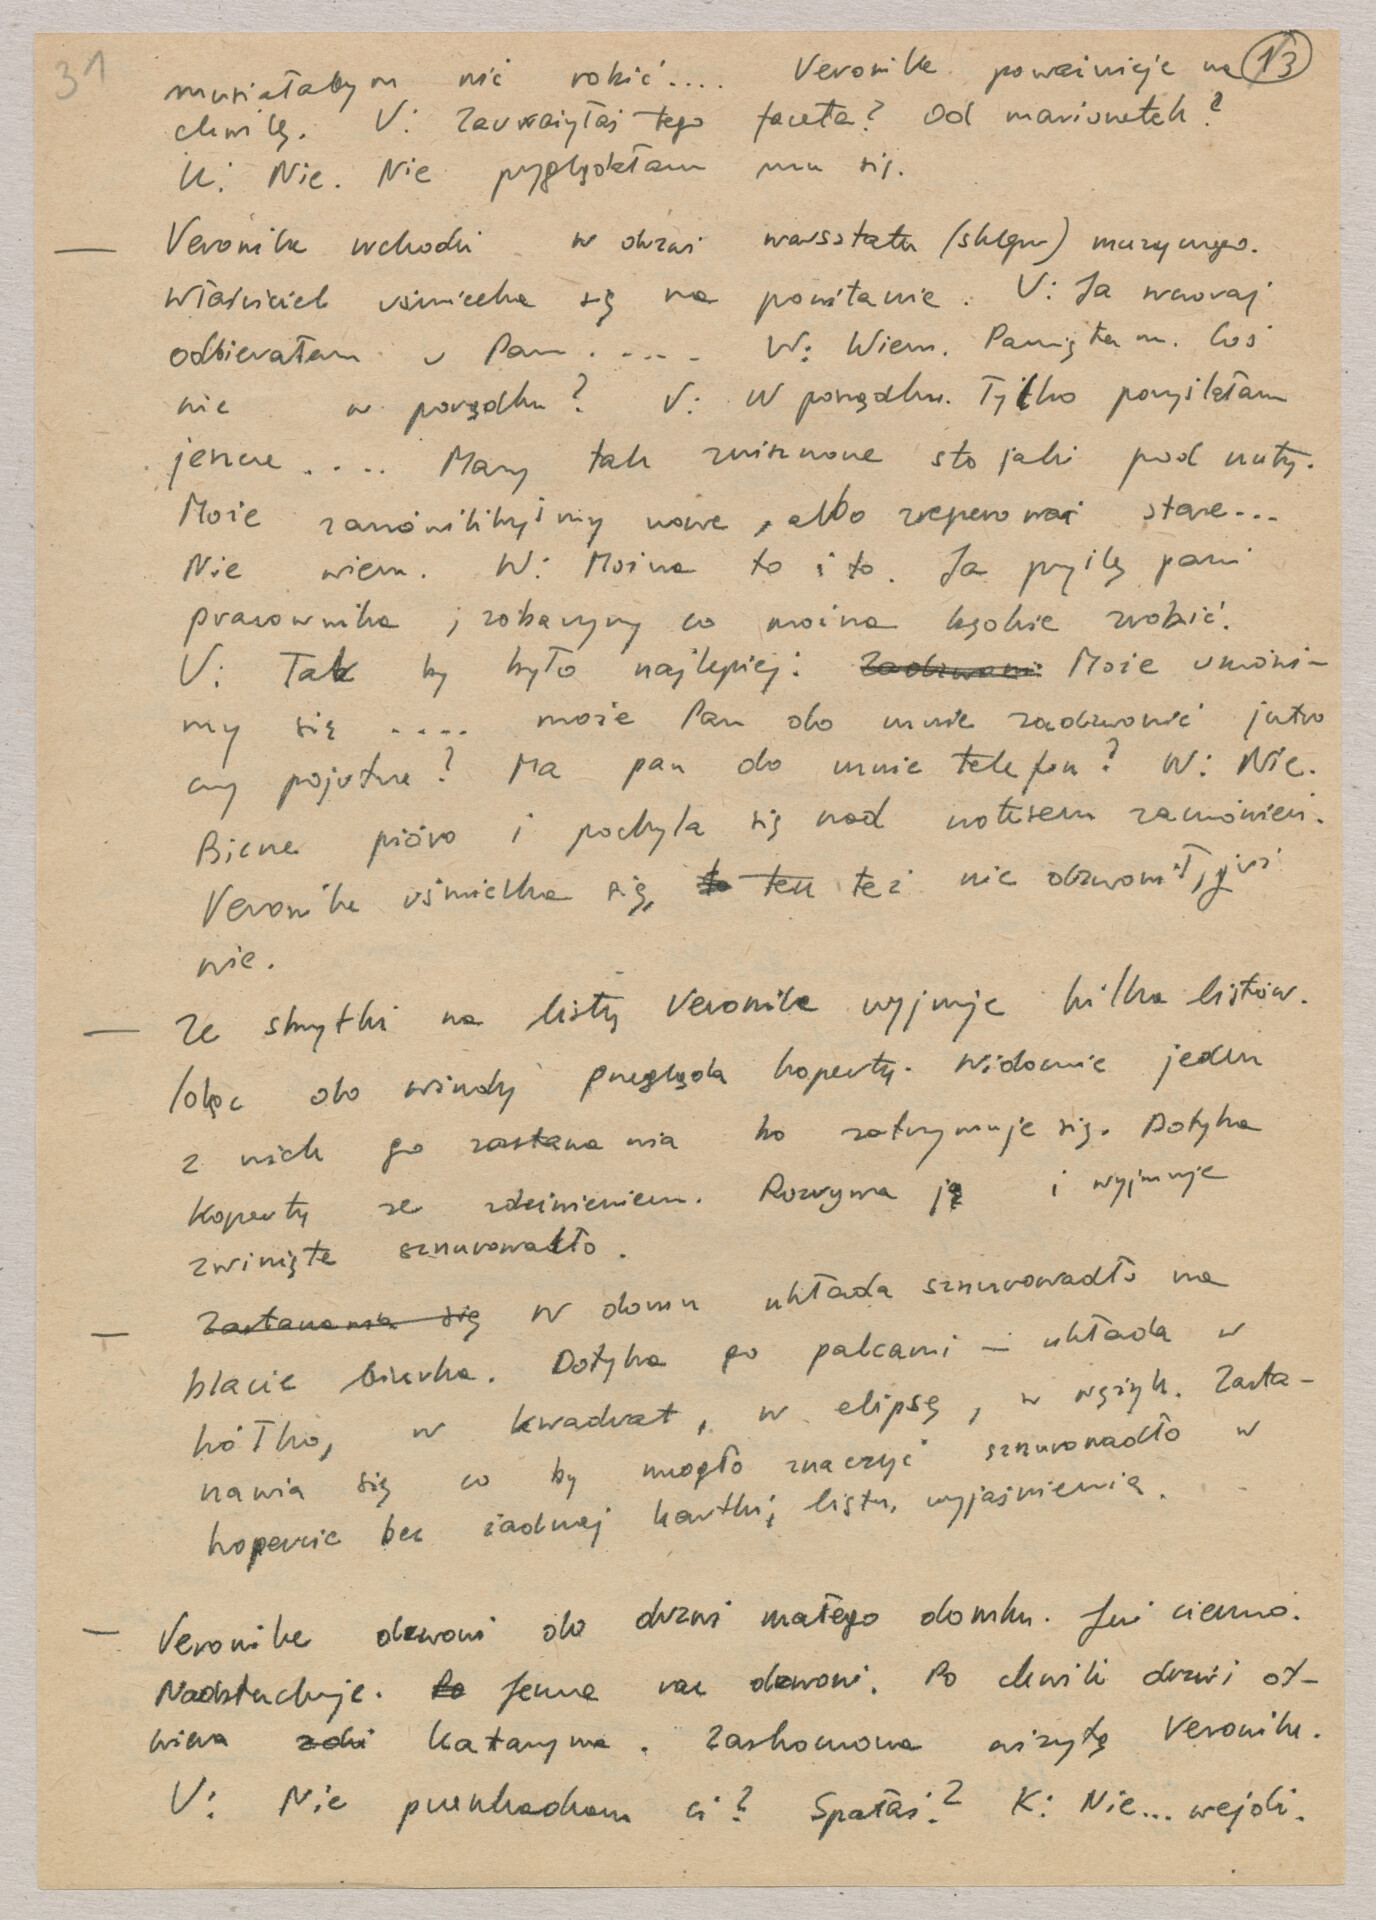 31
13
musiałabym nic robić.... Veronika poważnieje na
chwilę. V: Zauważyłaś tego faceta? Od marionetek?
K: Nie. Nie przyglądałam mu się.
— Veronika wchodzi w drzwi warsztatu (sklepu) muzycznego.
Właściciel uśmiecha się na powitanie. V: Ja wczoraj
odbierałam u Pana..... W: Wiem. Pamiętam. Coś
nie w porządku? V: W porządku. Tylko pomyślałam
jeszcze .... Mamy tak zniszczone stojaki pod nuty.
Może zamówilibyśmy nowe, albo zreperować stare...
Nie wiem. W: Można to i to. Ja przyślę pani
pracownika i zobaczymy co można będzie zrobić.
V: Tak by było najlepiej. Zadzwoni Może umówi-
my się .... może Pan do mnie zadzwonić jutro
czy pojutrze? Ma pan do mnie telefon? W: Nie.
Bierze pióro i pochyla się nad notesem zamówień.
Veronika uśmiecha się, to ten też nie dzwonił, już
wie.
— Ze skrytki na listy Veronika wyjmuje kilka listów.
Idąc do windy przegląda koperty. Widocznie jeden
z nich go zastanawia bo zatrzymuje się. Dotyka
koperty ze zdziwieniem. Rozrywa ją i wyjmuje
zwinięte sznurowadło.
— Zastanawia się W domu układa sznurowadło na
blacie biurka. Dotyka go palcami — układa w
kółko, w kwadrat, w elipsę, w wężyk. Zasta-
nawia się co by mogło znaczyć sznurowadło w
kopercie bez żadnej kartki, listu, wyjaśnienia.
— Veronika dzwoni do drzwi małego domku. Już ciemno.
Nadsłuchuje. Po Jeszcze raz dzwoni. Po chwili drzwi ot-
wiera Katarzyna. Zaskoczona wizytą Veroniki.
V: Nie przeszkadzam ci? Spałaś? K: Nie... wejdź.